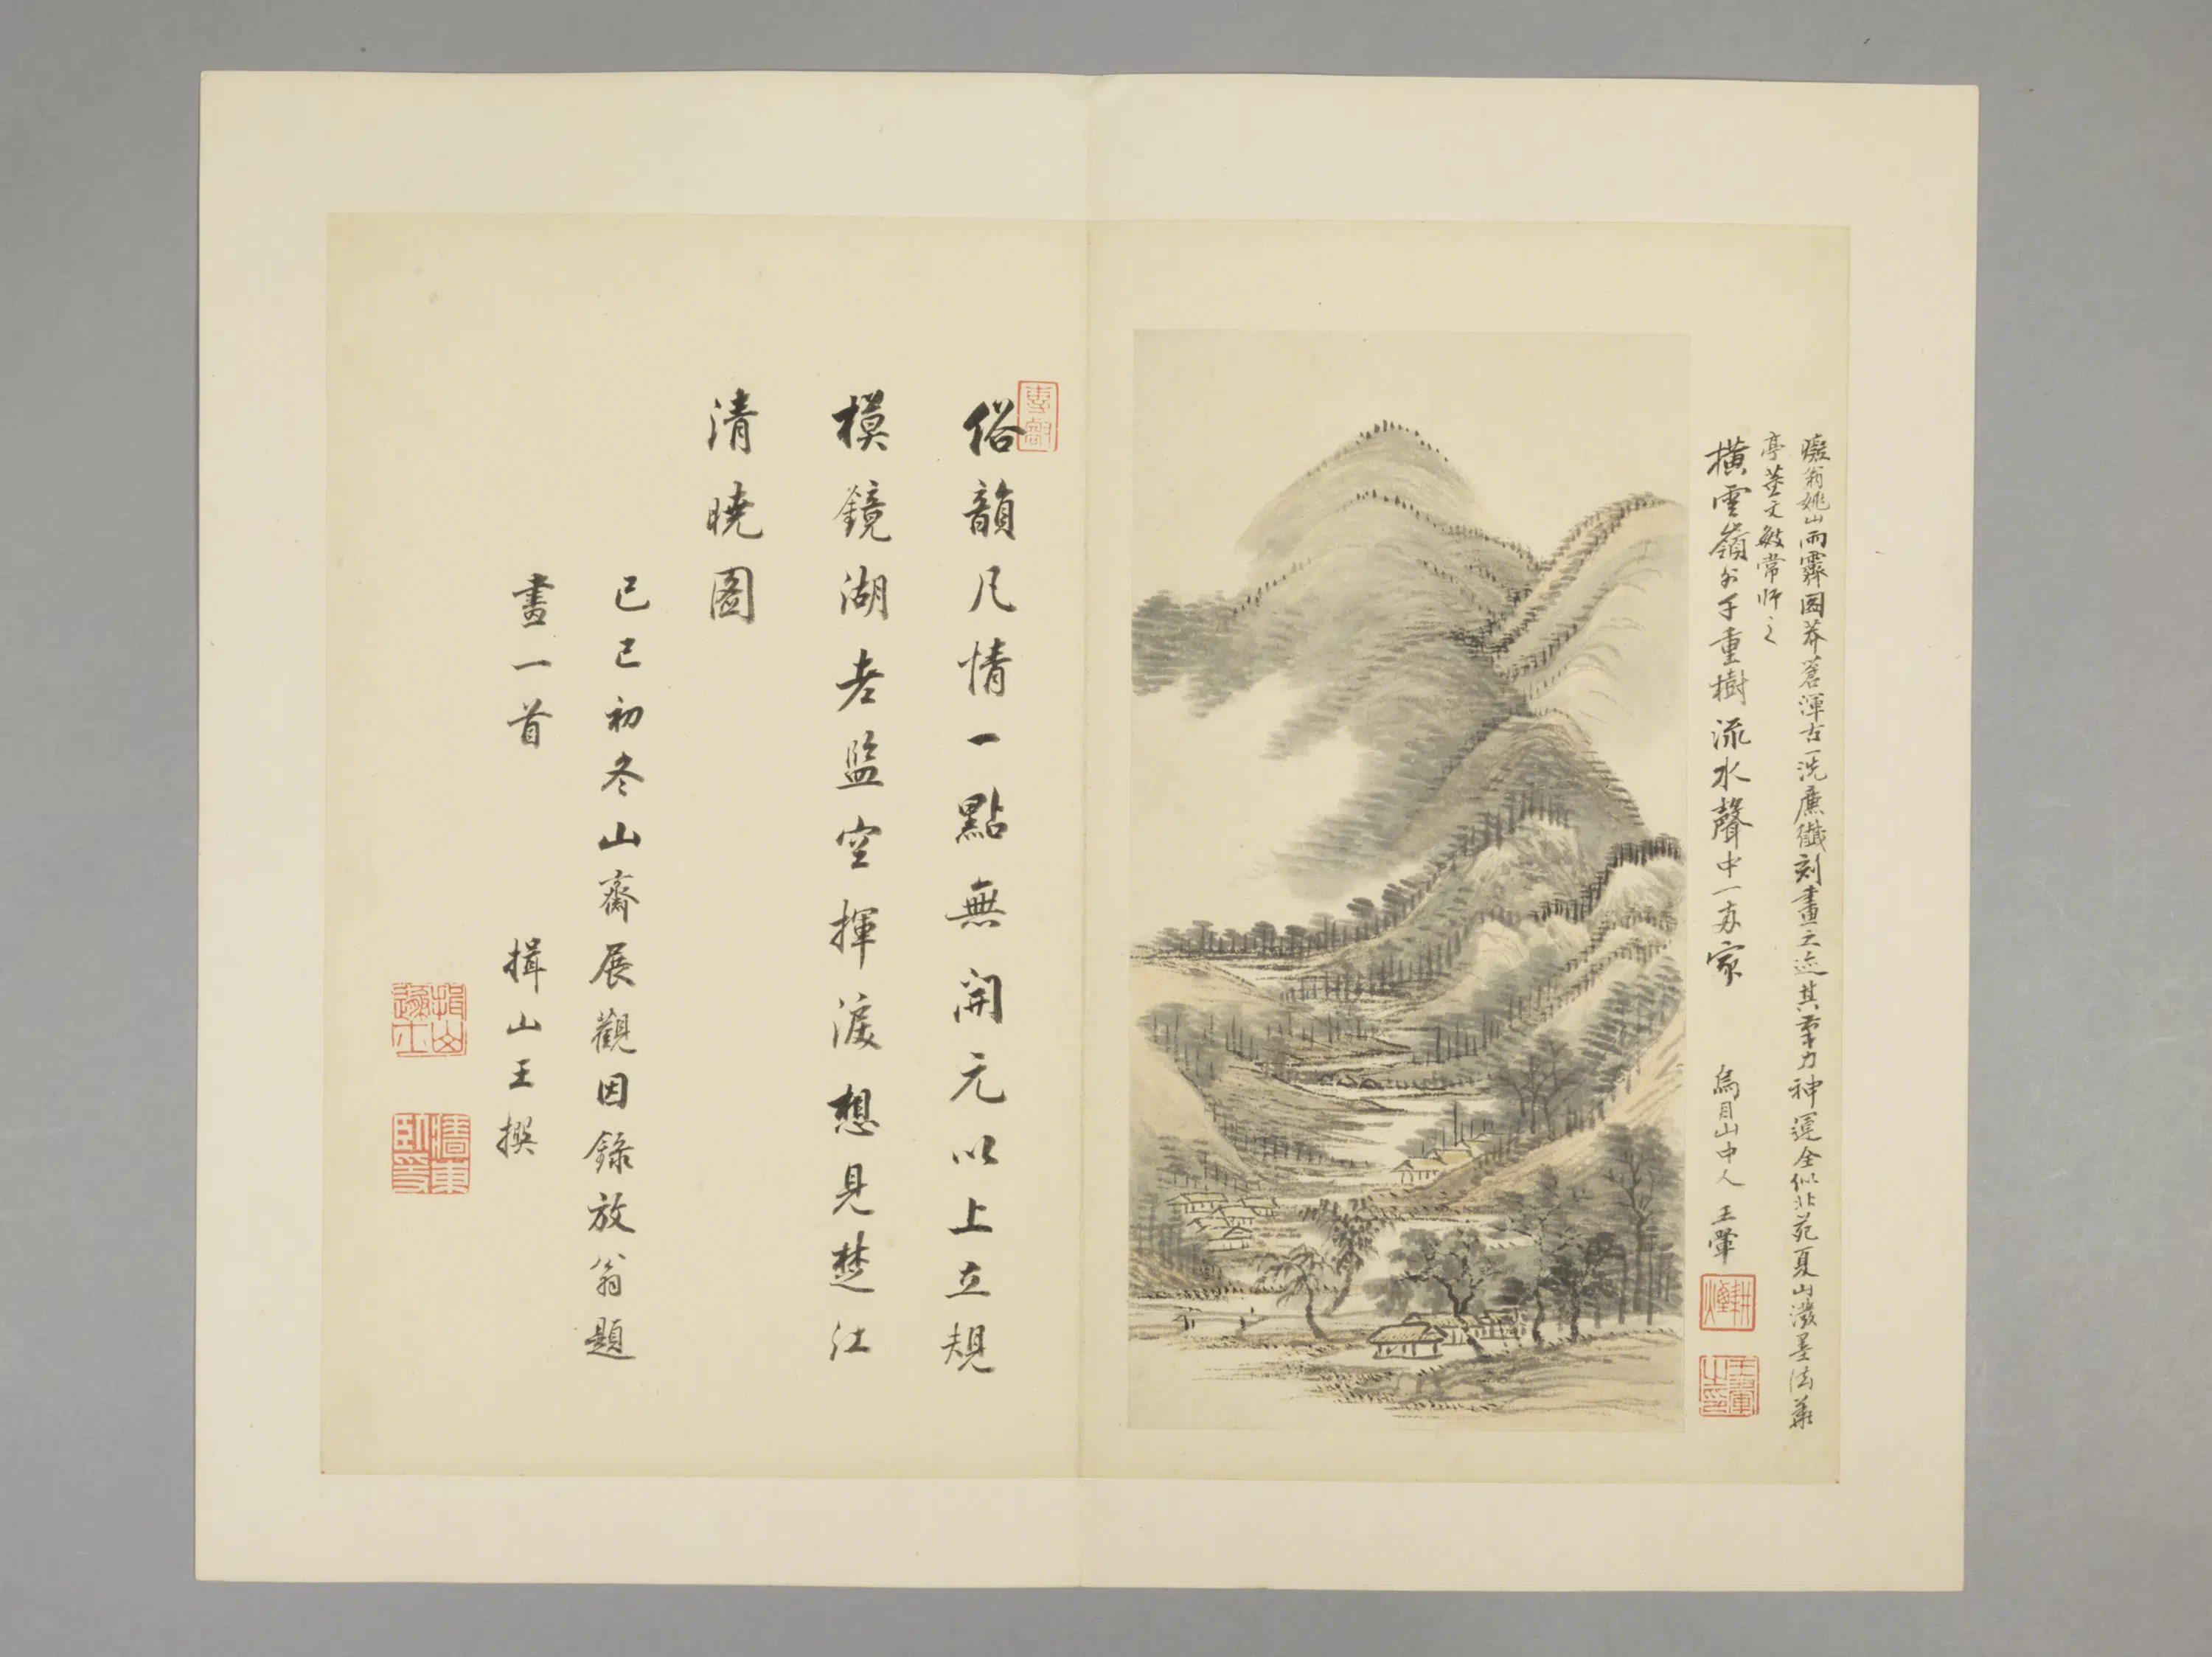 癡翁姚山雨霽圖莽蒼渾古一洗廉纖刻畫之迹其筆力神運全似北苑夏山潑墨法華
亭董文敏常師之
橫雲嶺外千重樹流水聲中一兩家
烏目山中人王翬
耕煙
王翬之印
俗韻凡情一點無開元以上立規
模鏡湖老監空揮淚想見楚江
清曉圖
己巳初冬山齋展觀因錄放翁題
畫一首
揖山王撰